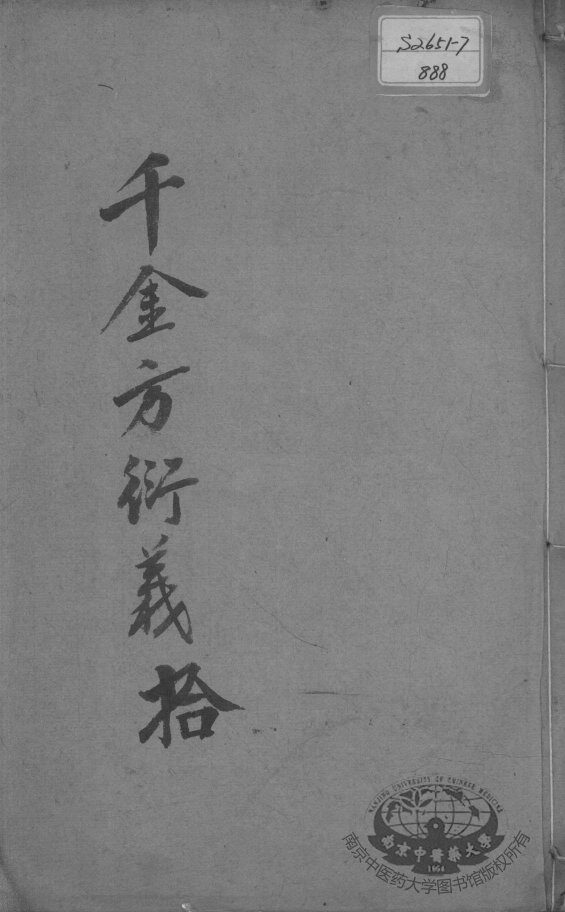 S2651-7
888
千金方衍義拾
NANJING UNIVERSITY OF CHINESE MEDICINE
南京中醫藥大學
1954
南京中医药大学图书馆版权所有